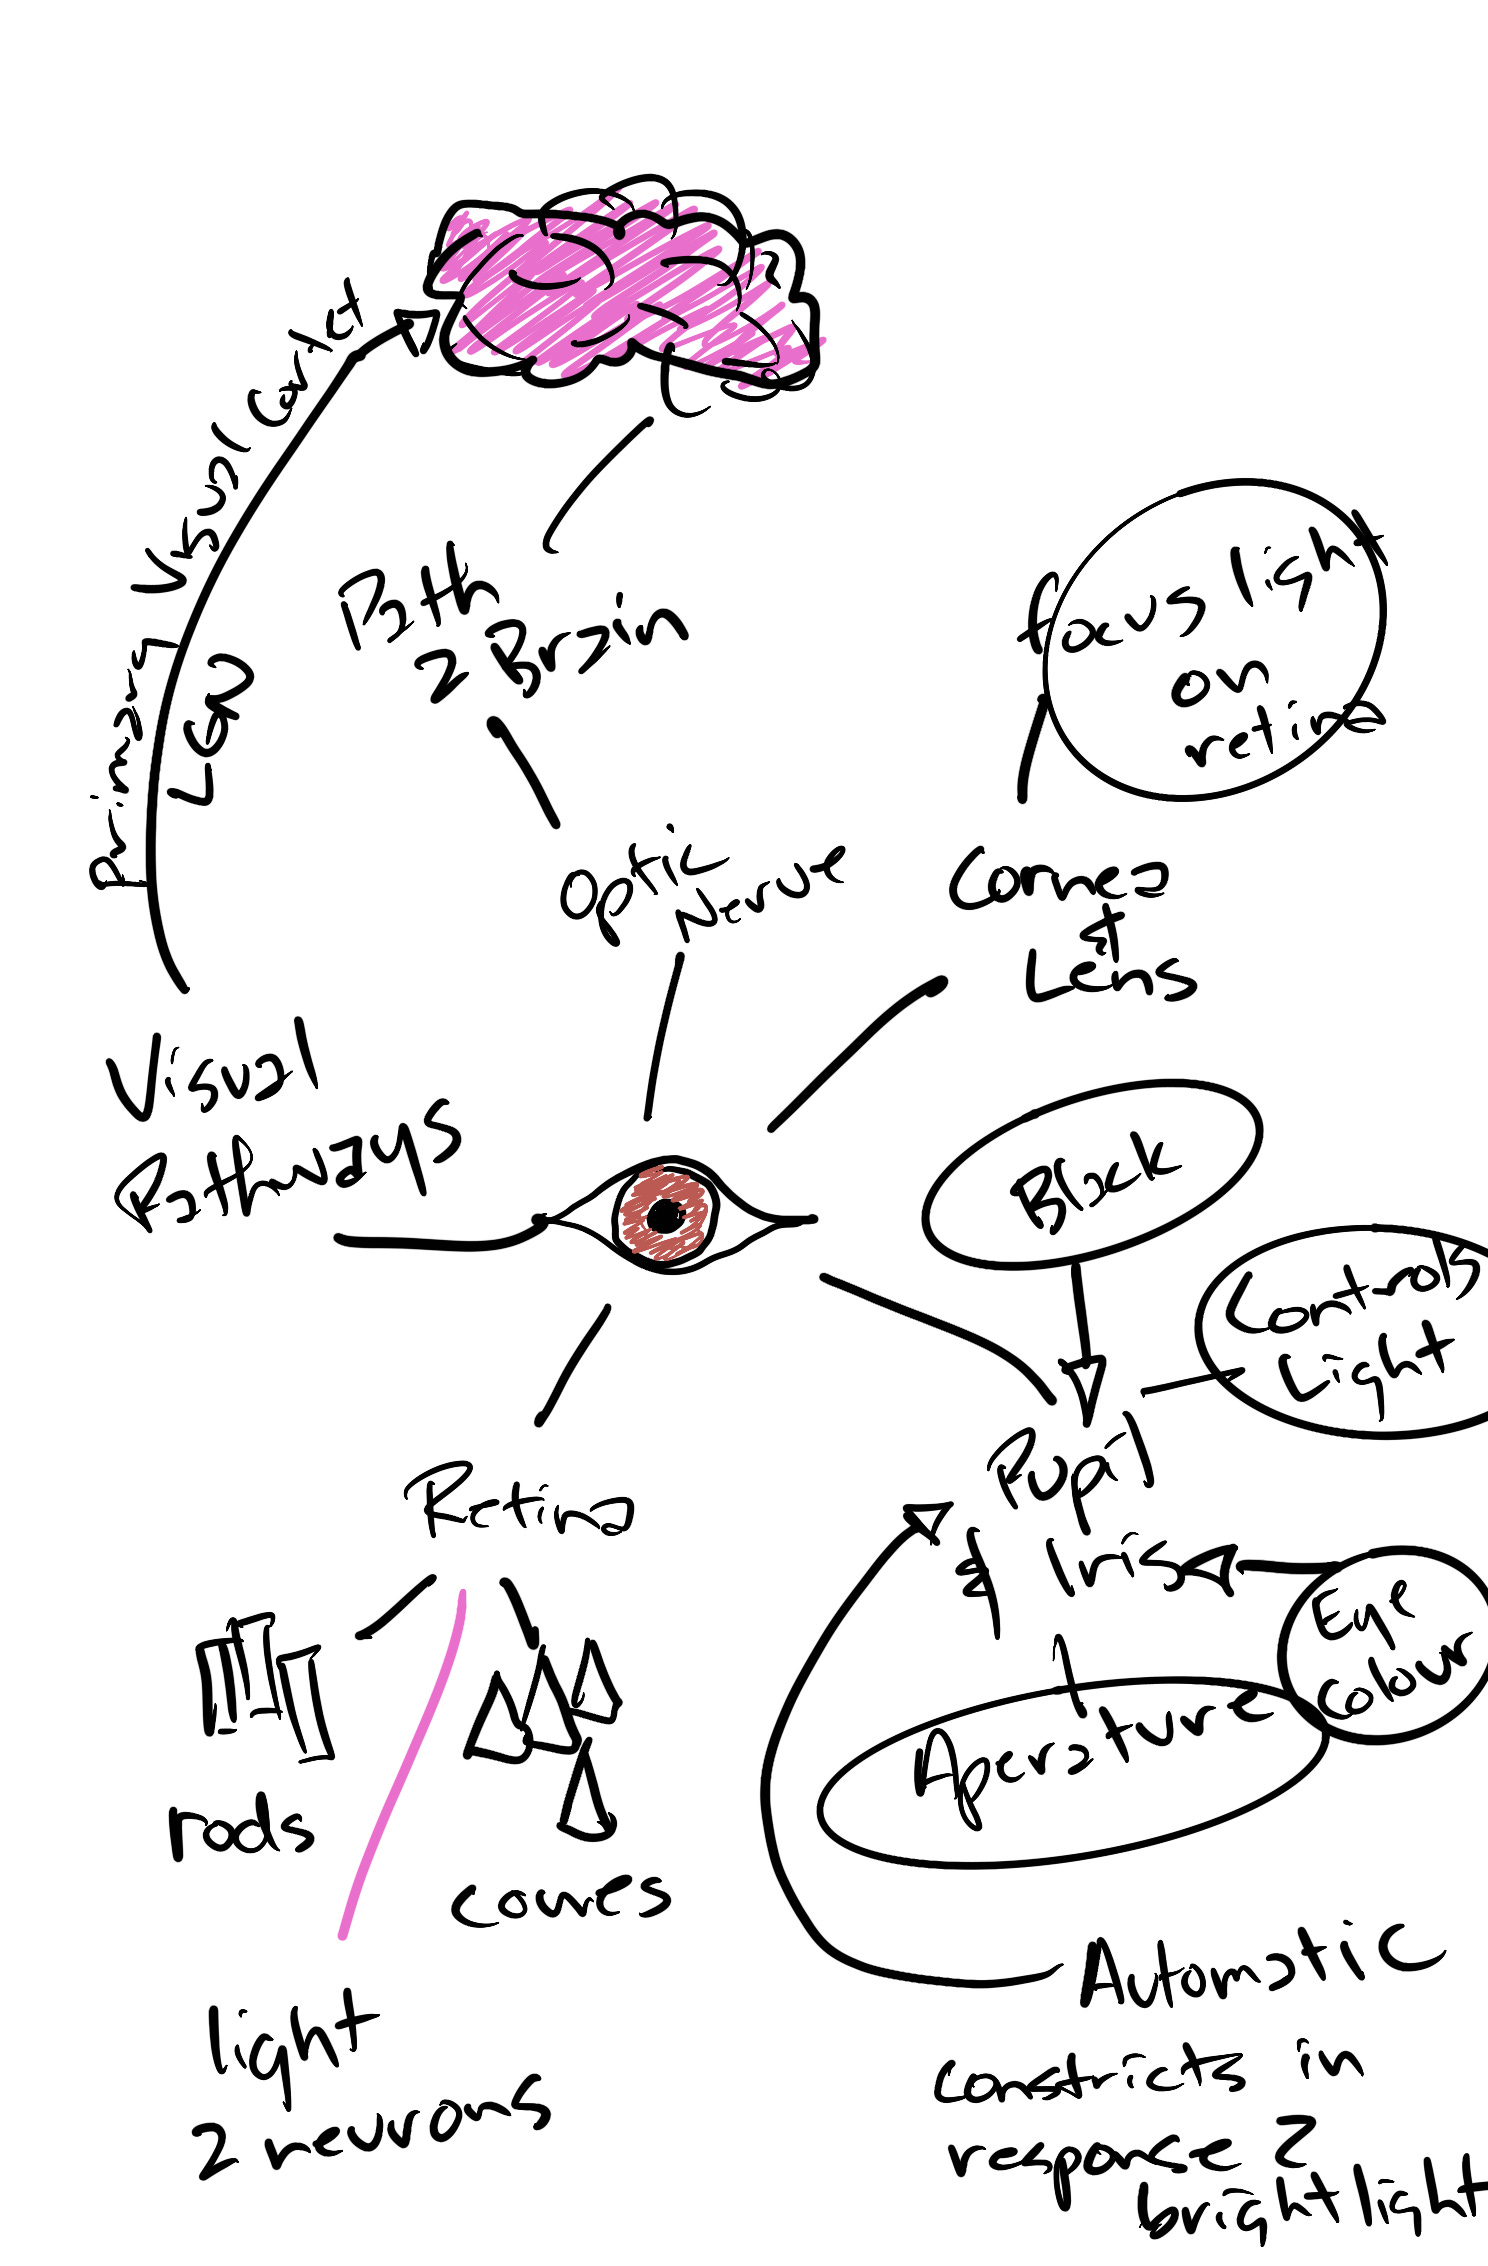 Primary Visual Cortex
LGN
Path
2 Brain
focus light
on
retina
Optic
Nerve
Cornea
+
Lens
Visual
Pathways
Black
Controls
Light
Pupil
& Iris
Eye
Colour
Aperature
Retina
rods
cones
light
2 neurons
Automatic
constricts in
response 2
bright light